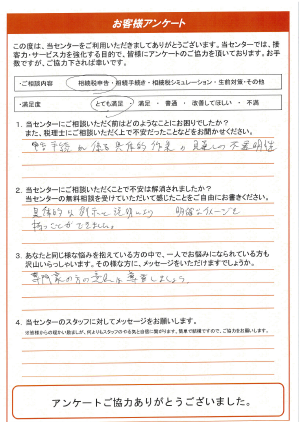 お客様アンケート
この度は、当センターをご利用いただきましてありがとうございます。当センターでは、接
客力・サービス力を強化する目的で、皆様にアンケートのご協力を頂いております。お手
数ですが、ご協力下されば幸いです。
・ご相談内容 相続税申告・相続手続き・相続税シミュレーション・生前対策・その他
・満足度 とても満足 ・ 満足 ・ 普通 ・ 改善してほしい ・ 不満
1. 当センターにご相談いただく前はどのようなことにお困りでしたか？
また、税理士にご相談いただく上で不安だったことなどをお聞かせください。
手続れ係る具体的作業の見通しの不透明性
2. 当センターにご相談いただくことで不安は解消されましたか？
当センターの無料相談を受けていただいて感じたことをご自由にお書きください。
具体的な例示と説明により 明確なイメージを
持つことができました。
3. あなたと同じ様な悩みを抱えている方の中で、一人でお悩みになられている方も
沢山いらっしゃいます。その様な方に、メッセージをいただけますでしょうか。
専門家の方の意見を尊重しましょう。
4. 当センターのスタッフに対してメッセージをお願いします。
※皆様からの暖かい励ましが、何よりもスタッフのやる気と自信に繋がります。簡単で結構ですので、ご協力をお願いします。
アンケートご協力ありがとうございました。